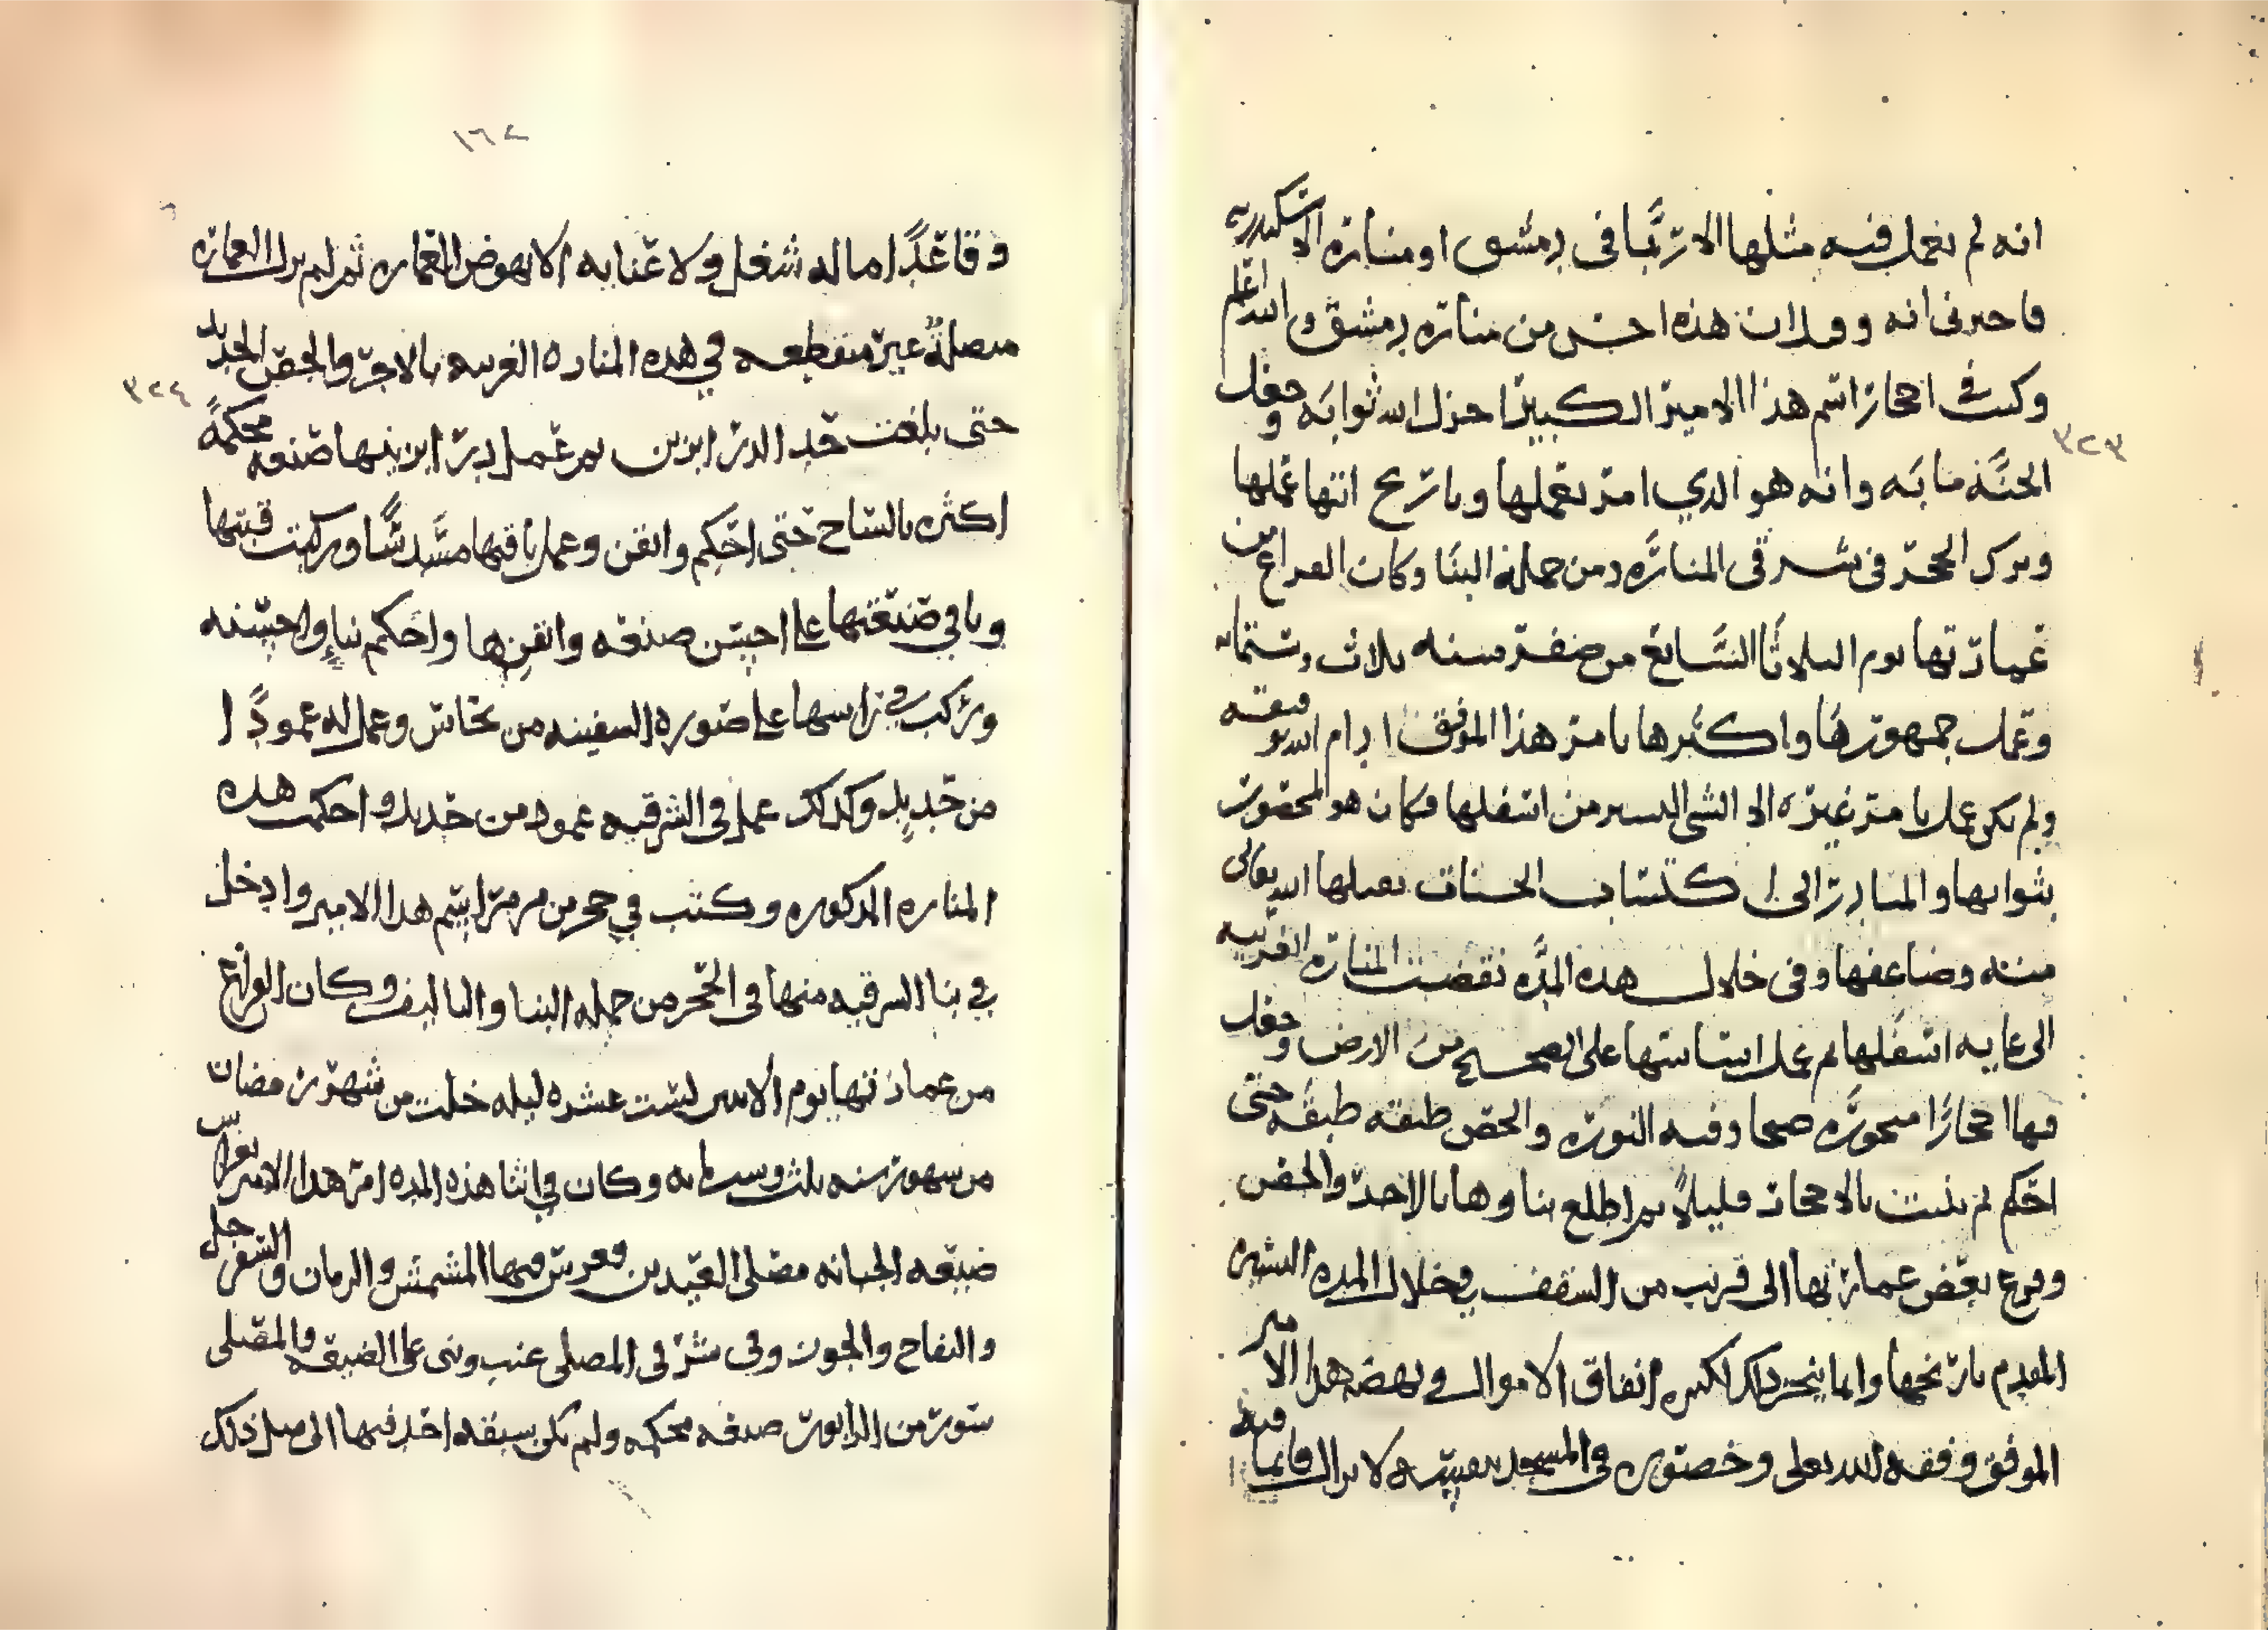 ٣٢٣
انه لم يعمل فيه مثلها الا ربما فى دمشق او منارة الاسكندريه
فاخبرنى انه وقد ان هذه احسن من منارة دمشق والله اعلم
وكتب فى احجار اسم هذا الامير الكبير اجزل الله ثوابه وجعل
الجنة مابه وانه هو الذي امر بعملها وتاريخ انتها عملها
وتركب الحجر فى شرقى المنارة ومن جملة البنا وكان الفراغ من
عمارتها يوم الثلاثا السابع من صفر سنه ثلاث وستمائه
وعمل جمهورها واكثرها بامر هذا الموفق ادام الله توفيقه
ولم يكن عمل بامر غيره الا الشى اليسير من اسفلها فكان هو المخصوص
بثوابها والمبادر الى اكتساب الحسنات تقبلها الله تعالى
منه وضاعفها وفى خلال هذه المده نقضت المنارة الغربيه
الى غايه اسفلها ثم عمل اساسها على الصحيح من الارض وجعل
فيها احجارًا منجوره صحا وفيه النوره والجص طبقه طبقه حتى
احكم ثم بنيت بالاحجار قليلاً ثم اطلع بناوها بالاجر والجص
وفرغ بعض عمارتها الى قريب من السقف في خلال المده اليسيره
المقدم تاريخها وانما ينجز ذلك لكثره انفاق الاموال في نهضه هذا الامير
الموفق وفقه الله تعلى وحضوره فى المسجد بنفسه لا يزال قايما فيه
١٦٢
٣٢٤
وقاعدًا ما له شغل ولا عنايه الا بهوض العماره ثم لم يزل العماره
متصلة غير منقطعه في هذه المناره الغربيه بالاجر والجص الجديد
حتى بلغت حد الدرابزين ثم عمل درابزينها صنعه محكمةً
اكثره بالساج حتى احكم واتقن وعمل باقيها مسدسًا وركبت قبتها
وباقي صنعتها على احسن صنعه واتقنها واحكم بنإ واحسنه
وركب في راسها على صوره السفينه من نحاس وعمل له عمودًا
من حديد وكذلك عمل فى الشرقيه عمود من حديد واحكمت هذه
المناره المذكوره وكتب في حجر من مرمر اسم هذا الامير وادخل
في بنا الشرقيه منها فى الحجر من جمله البنا والتاليف وكان الفراغ
من عمارتها يوم الاثنين لست عشره ليله خلت من شهر رمضان
من شهور سنه ثلث وستمايه وكان في اثنا هذه المده امر هذا الامير بغراس
ضيعه الجبانه مصلى العيدين وغرس فيها المشمش والرمان والسفرجل
والتفاح والجوز وفى شرقى المصلى عنب وبنى على الضيعه والمصلى
سور من الزابور صنعه محكمه ولم يكن سبقه احد فيها الى مثل ذلك